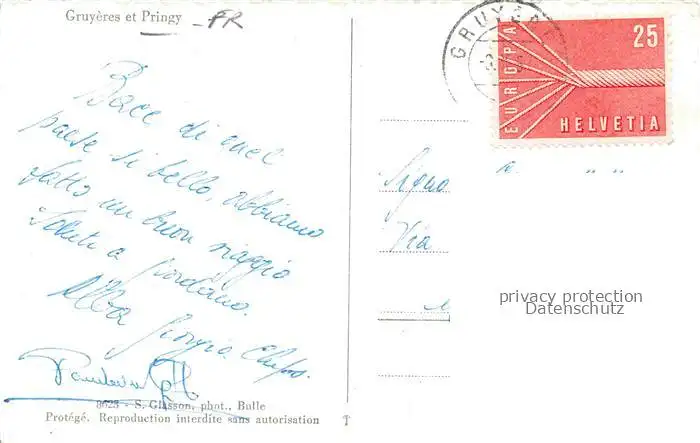 Gruyères et Pringy
- FR
Bace di quel
paese sì bello, abbiamo
fatto un buon viaggio
Saluti a Giordano.
Alba Giorgio
8623 - S. Glasson, phot., Bulle
Protégé. Reproduction interdite sans autorisation
GRUYÈRE
EUROPA
25
HELVETIA
Signo
Via
privacy protection
Datenschutz